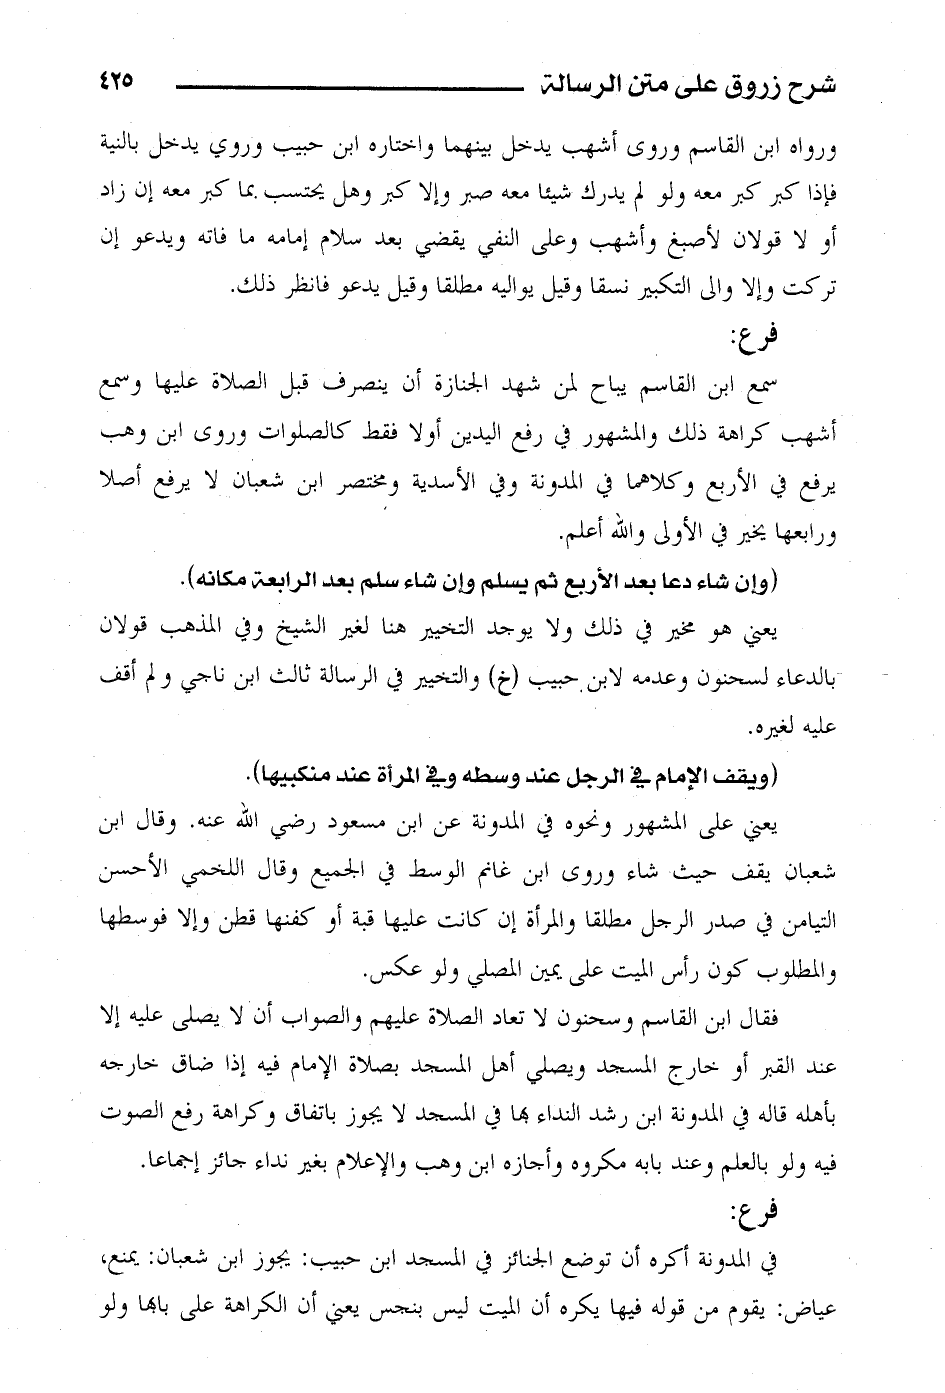 شرح زروق على متن الرسالة ٤٢٥
ورواه ابن القاسم وروى أشهب يدخل بينهما واختاره ابن حبيب وروي يدخل بالنية
فإذا كبر كبر معه ولو لم يدرك شيئا معه صبر وإلا كبر وهل يحتسب بما كبر معه إن زاد
أو لا قولان لأصبغ وأشهب وعلى النفي يقضي بعد سلام إمامه ما فاته ويدعو إن
تركت وإلا والى التكبير نسقا وقيل يواليه مطلقا وقيل يدعو فانظر ذلك.
فرع:
سمع ابن القاسم يباح لمن شهد الجنازة أن ينصرف قبل الصلاة عليها وسمع
أشهب كراهة ذلك والمشهور في رفع اليدين أولا فقط كالصلوات وروى ابن وهب
يرفع في الأربع وكلاهما في المدونة وفي الأسدية ومختصر ابن شعبان لا يرفع أصلا
ورابعها يخير في الأولى والله أعلم.
(وإن شاء دعا بعد الأربع ثم يسلم وإن شاء سلم بعد الرابعة مكانه).
يعني هو مخير في ذلك ولا يوجد التخيير هنا لغير الشيخ وفي المذهب قولان
بالدعاء لسحنون وعدمه لابن حبيب (خ) والتخيير في الرسالة ثالث ابن ناجي ولم أقف
عليه لغيره.
(ويقف الإمام في الرجل عند وسطه وفي المرأة عند منكبيها).
يعني على المشهور ونحوه في المدونة عن ابن مسعود رضي الله عنه. وقال ابن
شعبان يقف حيث شاء وروى ابن غانم الوسط في الجميع وقال اللخمي الأحسن
التيامن في صدر الرجل مطلقا والمرأة إن كانت عليها قبة أو كفنها قطن وإلا فوسطها
والمطلوب كون رأس الميت على يمين المصلي ولو عكس.
فقال ابن القاسم وسحنون لا تعاد الصلاة عليهم والصواب أن لا يصلى عليه إلا
عند القبر أو خارج المسجد ويصلي أهل المسجد بصلاة الإمام فيه إذا ضاق خارجه
بأهله قاله في المدونة ابن رشد النداء بها في المسجد لا يجوز باتفاق وكراهة رفع الصوت
فيه ولو بالعلم وعند بابه مكروه وأجازه ابن وهب والإعلام بغير نداء جائز إجماعا.
فرع:
في المدونة أكره أن توضع الجنائز في المسجد ابن حبيب: يجوز ابن شعبان: يمنع،
عياض: يقوم من قوله فيها يكره أن الميت ليس بنجس يعني أن الكراهة على بابها ولو